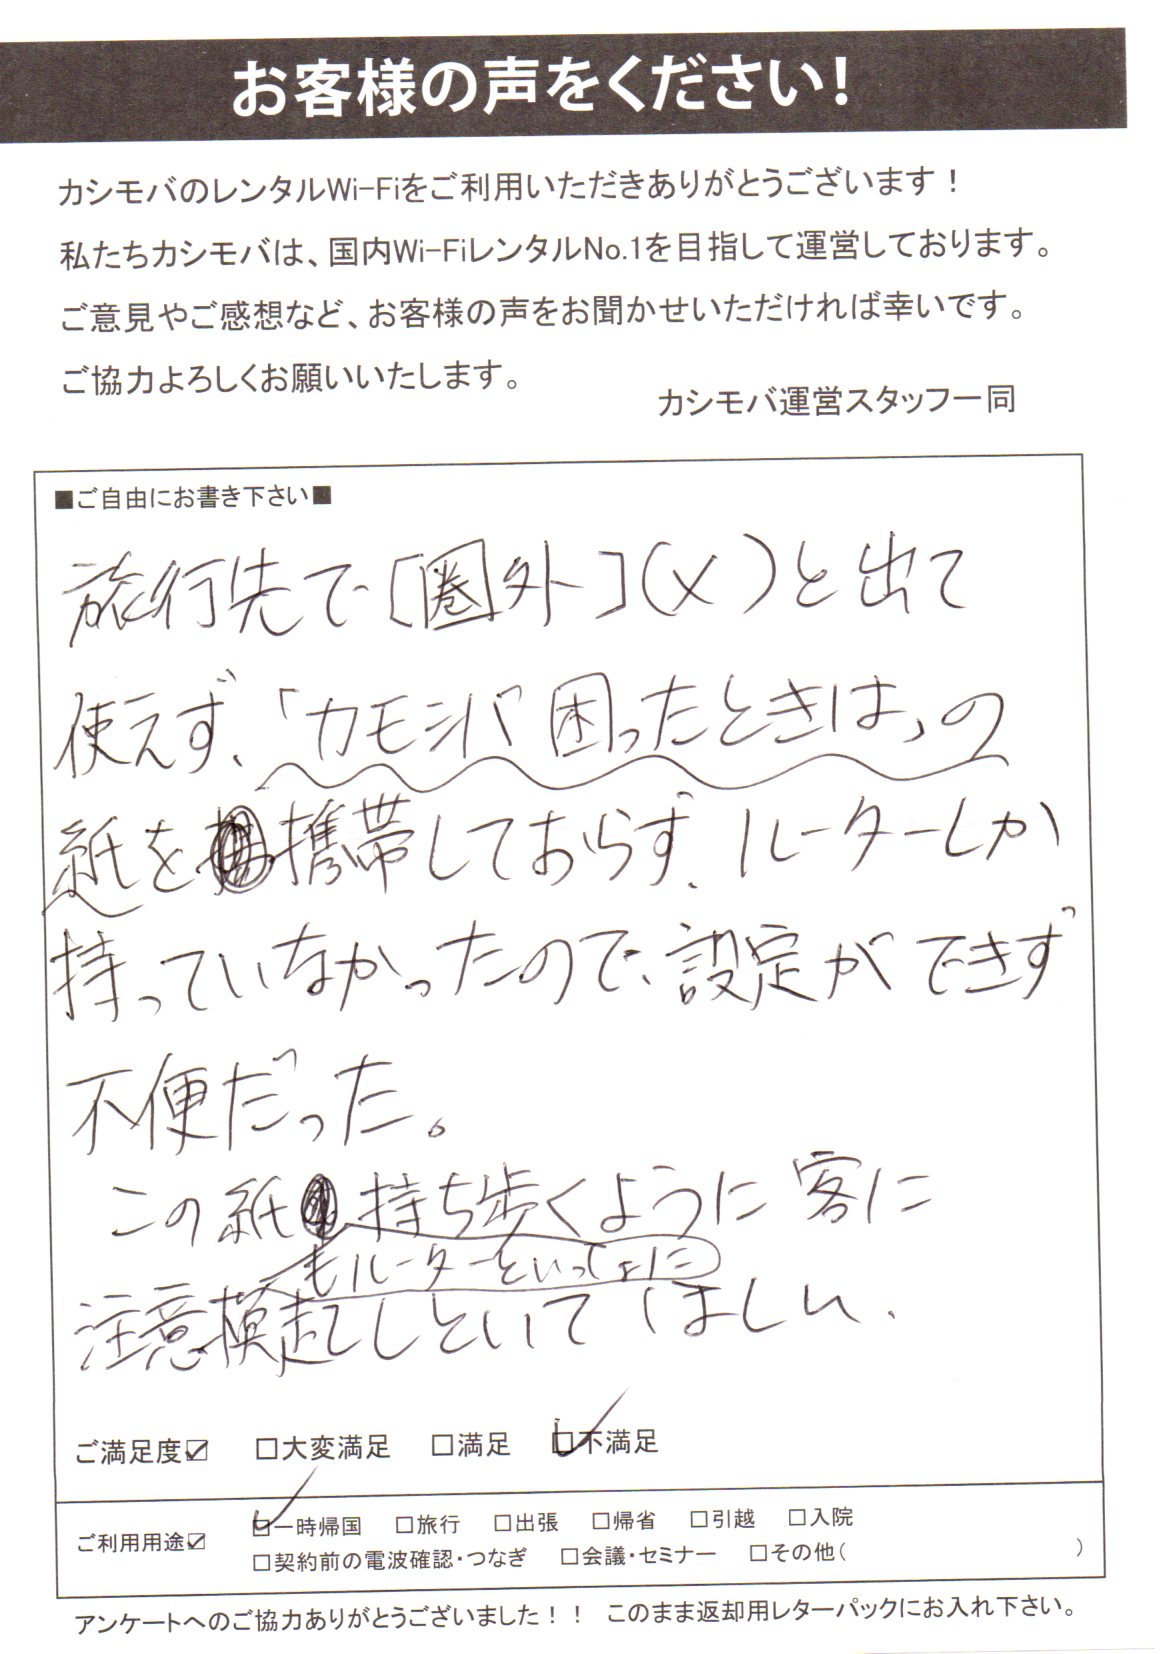 お客様の声をください！
カシモバのレンタルWi-Fiをご利用いただきありがとうございます！
私たちカシモバは、国内Wi-FiレンタルNo.1を目指して運営しております。
ご意見やご感想など、お客様の声をお聞かせいただければ幸いです。
ご協力よろしくお願いいたします。
カシモバ運営スタッフ一同
■ご自由にお書き下さい■
旅行先で［圏外］（×）と出て
使えず、「カモシバ 困ったときは」の
紙を携帯しておらず、ルーターしか
持っていなかったので、設定ができず
不便だった。
この紙 持ち歩くように 客に
もルーターといっしょに
注意喚起しといてほしい、
ご満足度☑ □大変満足 □満足 ☑不満足
ご利用用途☑ ☑一時帰国 □旅行 □出張 □帰省 □引越 □入院
□契約前の電波確認・つなぎ □会議・セミナー □その他（ ）
アンケートへのご協力ありがとうございました！！ このまま返却用レターパックにお入れ下さい。